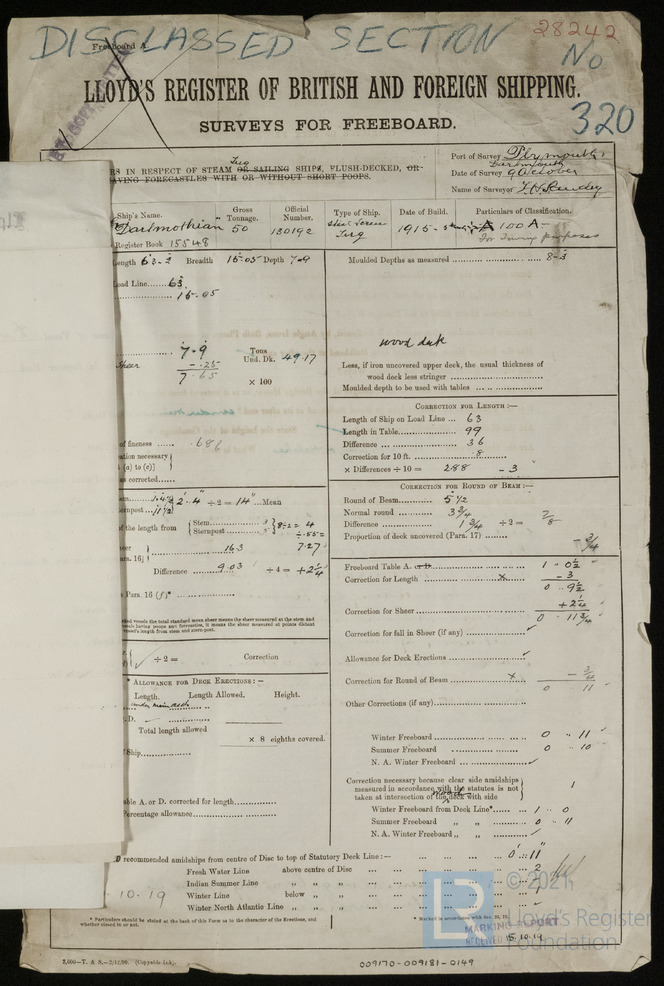 DISCLASSED SECTION
28242
No
320
Freeboard A.
LLOYD'S REGISTER OF BRITISH AND FOREIGN SHIPPING.
SURVEYS FOR FREEBOARD.
Tug
RS IN RESPECT OF STEAM OR SAILING SHIPS, FLUSH-DECKED, OR
HAVING FORECASTLES WITH OR WITHOUT SHORT POOPS.
Port of Survey Plymouth
Dartmouth
Date of Survey 9 October
Name of Surveyor
Ship's Name.
Gross Tonnage.
Official Number.
Type of Ship.
Date of Build.
Particulars of Classification.
"Dartmothian" 50 130192 Steel Screw Tug 1915 A 100 A
for Towing purposes
Register Book 15548
Length Breadth 15.05 Depth 7.9
Moulded Depths as measured 8-3
Load Line 63
15.05
wood deck
7.9
Sheer -.25
7.65
Tons Und. Dk. 49.17
× 100
Less, if iron uncovered upper deck, the usual thickness of
wood deck less stringer
Moulded depth to be used with tables
CORRECTION FOR LENGTH :—
Length of Ship on Load Line ... 63
Length in Table 99
Difference 36
Correction for 10 ft. .8
× Differences ÷ 10 = 288 - 3
of fineness
ation necessary
(a) to (c)]
as corrected
CORRECTION FOR ROUND OF BEAM :—
Round of Beam 5 1/2
Normal round 3 3/4
Difference 1 3/4 ÷ 2 = 7/8
Proportion of deck uncovered (Para. 17)
- 3/4
2'.4" ÷ 2 = 14" Mean
of the length from
Stem
Sternpost
8 ÷ 2 = 4
÷ .55 =
7.27
16.3
Difference 9.03 ÷ 4 = + 2 1/4
Para 16 (f)*
Freeboard Table A. or D. 1 . 0 1/2
Correction for Length × - 3
0 .. 9 1/2
Correction for Sheer + 2 1/4
0 . 11 3/4
Correction for fall in Sheer (if any)
Allowance for Deck Erections
Correction for Round of Beam × - 3/4
0 11
Other Corrections (if any)
÷ 2 = Correction
* ALLOWANCE FOR DECK ERECTIONS :—
Length. Length Allowed. Height.
under main deck
Total length allowed
× 8 eighths covered.
Ship
Winter Freeboard 0 .. 11
Summer Freeboard 0 .. 10
N. A. Winter Freeboard
Correction necessary because clear side amidships
measured in accordance with the statutes is not
taken at intersection of the wood deck with side
1
Winter Freeboard from Deck Line* 1 .. 0
Summer Freeboard „ „ 0 .. 11
N. A. Winter Freeboard „ „
ble A. or D. corrected for length
Percentage allowance
D recommended amidships from centre of Disc to top of Statutory Deck Line :— 0'.11"
Fresh Water Line above centre of Disc 2
Indian Summer Line „ „ „
Winter Line below „ „ 1
Winter North Atlantic Line „ „ „
10.19
* Particulars should be stated at the back of this Form as to the character of the Erections, and
whether closed in or not.
* Marked in accordance with
MARKING REPORT
RECEIVED 15.10.19
© 2021,
Lloyd's Register
Foundation
3,000—T. & S.—2/12/09. (Copyable Ink).
009170-009181-0149